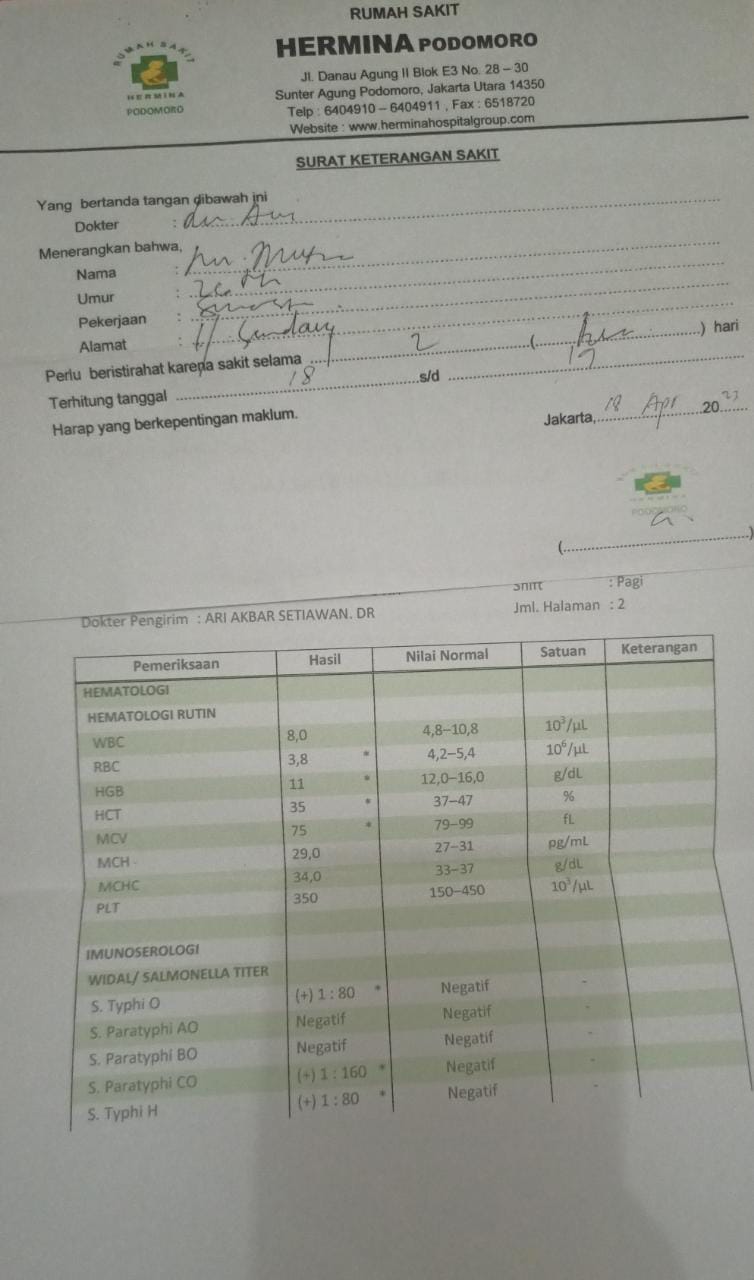 RUMAH SAKIT
HERMINA PODOMORO
RUMAH SAKIT
HERMINA
PODOMORO
Jl. Danau Agung II Blok E3 No. 28 – 30
Sunter Agung Podomoro, Jakarta Utara 14350
Telp : 6404910 – 6404911 , Fax : 6518720
Website : www.herminahospitalgroup.com
SURAT KETERANGAN SAKIT
Yang bertanda tangan dibawah ini
Dokter :
Menerangkan bahwa,
Nama :
Umur :
Pekerjaan :
Alamat :
Perlu beristirahat karena sakit selama 2 ( ) hari
Terhitung tanggal 18 s/d 19
Harap yang berkepentingan maklum.
Jakarta, 18 Apr 2023
HERMINA
PODOMORO
(                    )
Shift : Pagi
Dokter Pengirim : ARI AKBAR SETIAWAN. DR
Jml. Halaman : 2
Pemeriksaan Hasil Nilai Normal Satuan Keterangan
HEMATOLOGI
HEMATOLOGI RUTIN
WBC 8,0 4,8–10,8 10³/µL
RBC 3,8 * 4,2–5,4 10⁶/µL
HGB 11 * 12,0–16,0 g/dL
HCT 35 * 37–47 %
MCV 75 * 79–99 fL
MCH 29,0 27–31 pg/mL
MCHC 34,0 33–37 g/dL
PLT 350 150–450 10³/µL
IMUNOSEROLOGI
WIDAL/ SALMONELLA TITER
S. Typhi O (+) 1 : 80 * Negatif -
S. Paratyphi AO Negatif Negatif -
S. Paratyphi BO Negatif Negatif -
S. Paratyphi CO (+) 1 : 160 * Negatif -
S. Typhi H (+) 1 : 80 * Negatif -